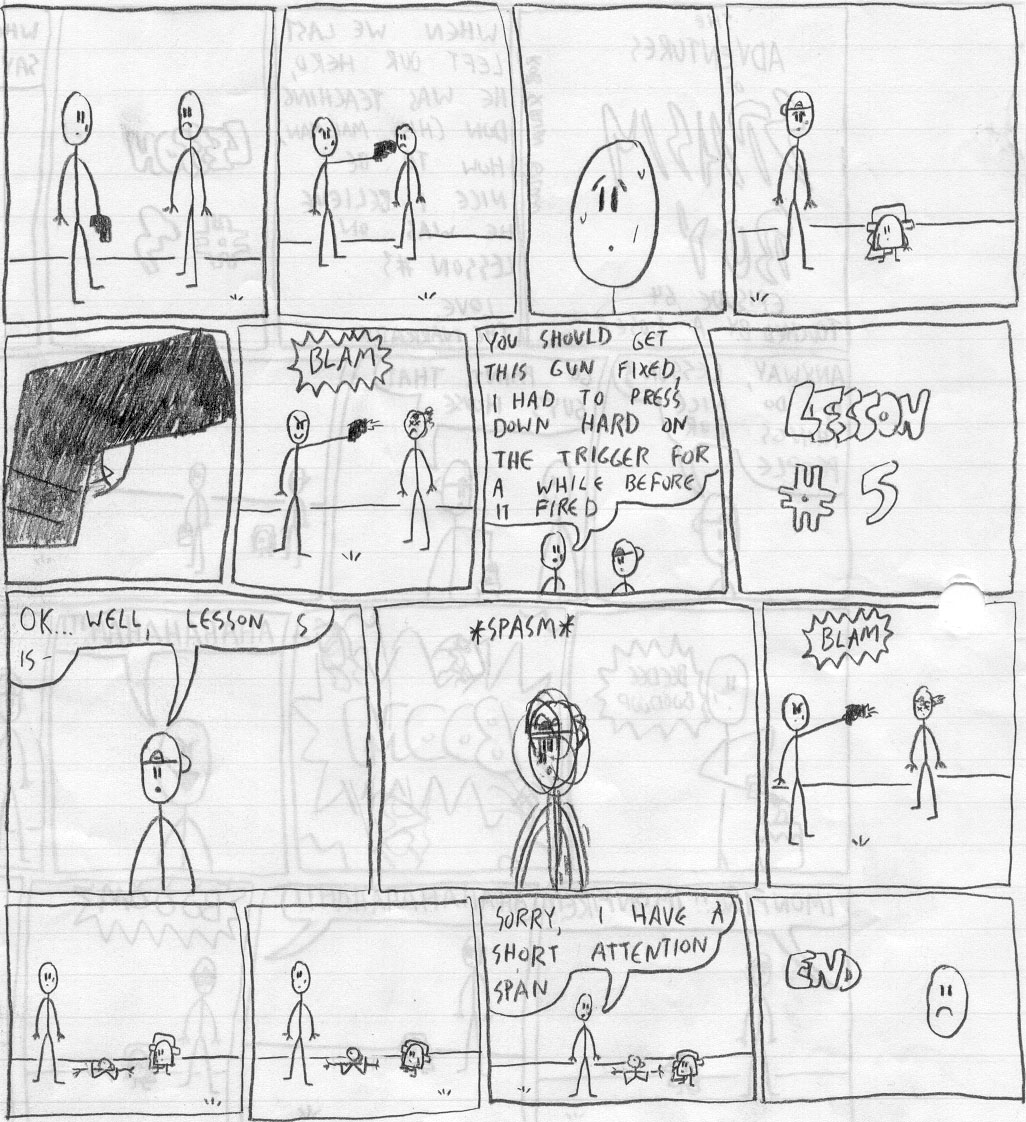 BLAM
YOU SHOULD GET
THIS GUN FIXED,
I HAD TO PRESS
DOWN HARD ON
THE TRIGGER FOR
A WHILE BEFORE
IT FIRED
LESSON
# 5
OK... WELL, LESSON 5
IS-
*SPASM*
BLAM
SORRY, I HAVE A
SHORT ATTENTION
SPAN
END